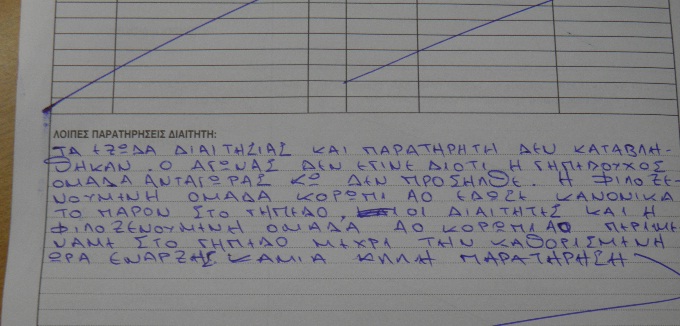 ΛΟΙΠΕΣ ΠΑΡΑΤΗΡΗΣΕΙΣ ΔΙΑΙΤΗΤΗ:
ΤΑ ΕΞΩΔΑ ΔΙΑΙΤΗΣΙΑΣ ΚΑΙ ΠΑΡΑΤΗΡΗΤΗ ΔΕΝ ΚΑΤΑΒΛΗ-
ΘΗΚΑΝ. Ο ΑΓΩΝΑΣ ΔΕΝ ΕΓΙΝΕ ΔΙΟΤΙ Η ΓΗΠΕΔΟΥΧΟΣ
ΟΜΑΔΑ ΑΝΤΑΓΩΡΑΣ ΚΩ ΔΕΝ ΠΡΟΣΗΛΘΕ. Η ΦΙΛΟΞΕ-
ΝΟΥΜΕΝΗ ΟΜΑΔΑ ΚΟΡΩΠΙ ΑΟ ΕΔΩΣΕ ΚΑΝΟΝΙΚΑ
ΤΟ ΠΑΡΟΝ ΣΤΟ ΓΗΠΕΔΟ, ΟΙ ΔΙΑΙΤΗΤΕΣ ΚΑΙ Η
ΦΙΛΟΞΕΝΟΥΜΕΝΗ ΟΜΑΔΑ ΑΟ ΚΟΡΩΠΙ ΑΟ ΠΕΡΙΜΕ-
ΝΑΜΕ ΣΤΟ ΓΗΠΕΔΟ ΜΕΧΡΙ ΤΗΝ ΚΑΘΟΡΙΣΜΕΝΗ
ΩΡΑ ΕΝΑΡΞΗΣ. ΚΑΜΙΑ ΑΛΛΗ ΠΑΡΑΤΗΡΗΣΗ